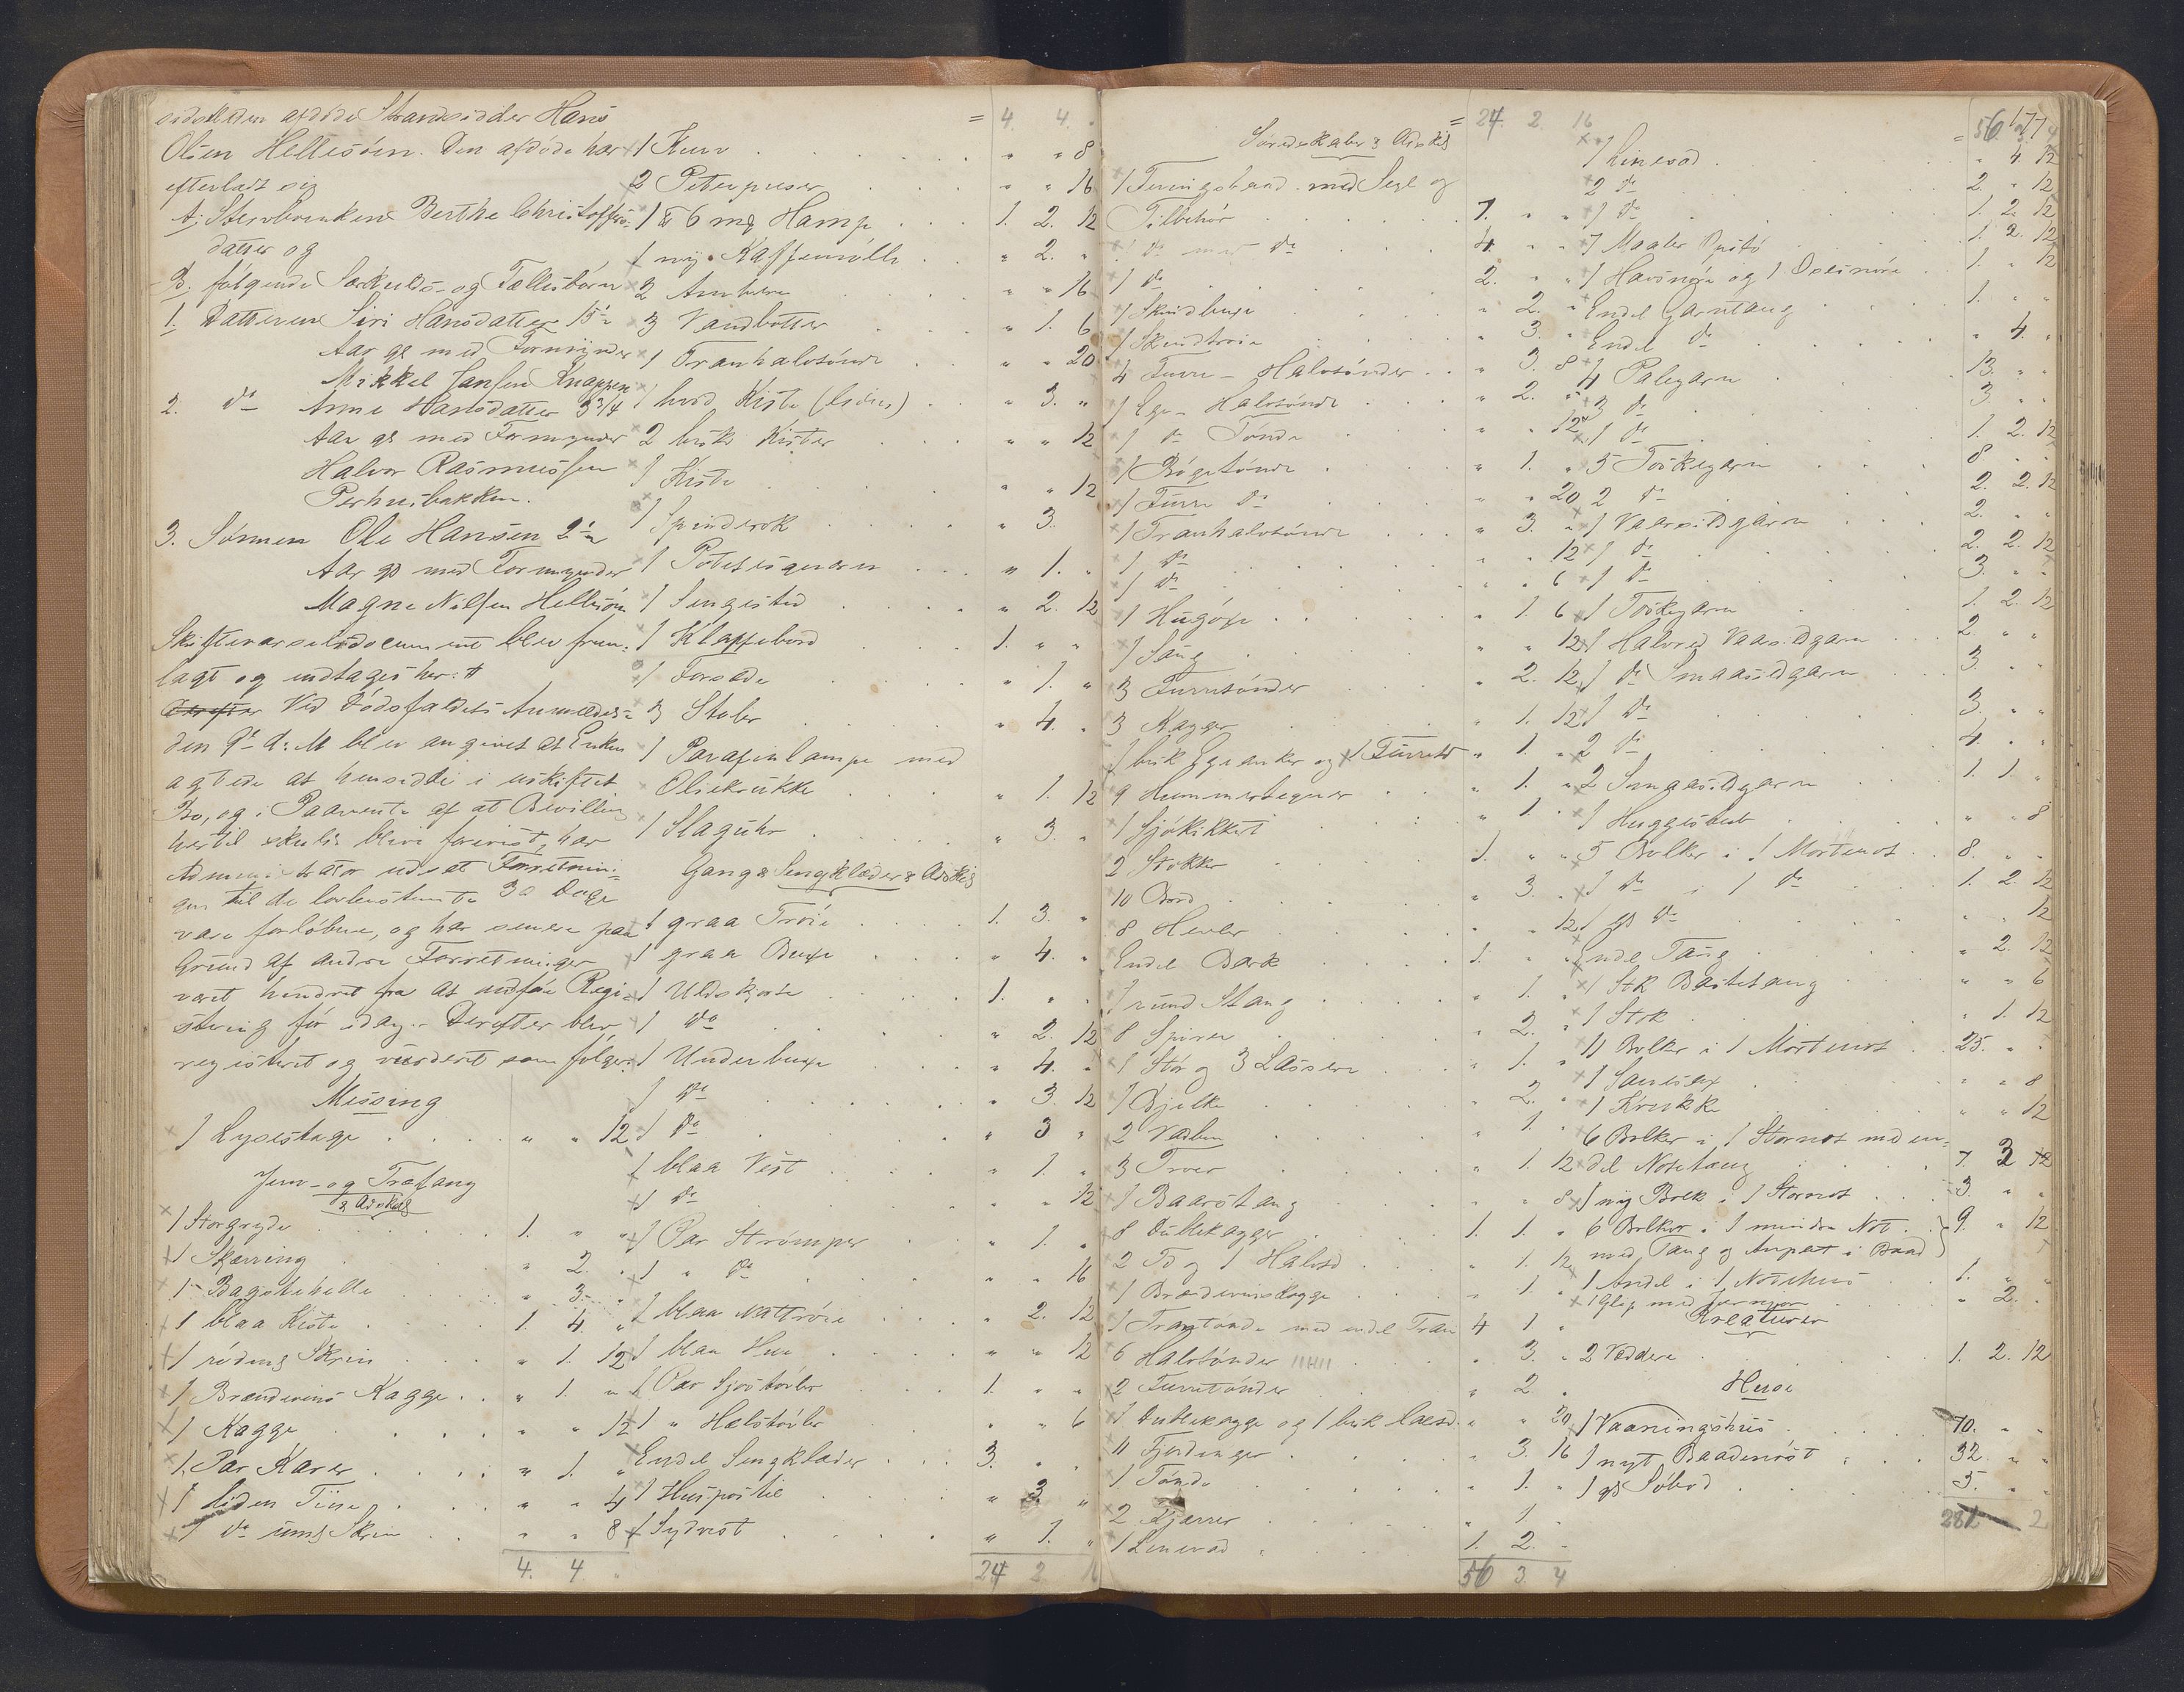 sidstleden afdøde Strandsidder Hans
Olsen Hellesøen. Den afdøde har
efterladt sig
A: Sterboenken Berthe Christoffers-
datter og
B: følgende Særkulds- og Fællesbørn
1. Datteren Siri Hansdatter 15 1/2
Aar gl med Formynder
Mikkel Jansen Knappen
2. do Anne Hansdatter 3 3/4
Aar gl med Formynder
Halvor Rasmussen
Perhusbakken.
3. Sønnen Ole Hansen 2 1/2
Aar gl med Formynder
Magne Nilsen Hellesøen
Skiftevarselsdocument blev frem-
lagt og indtages her: #
Derefter Ved Dødsfaldets Anmeldelse
den 9de d: M blev angivet at Enken
agtede at hensidde i uskiftet
Bo, og i Paavente af at Bevilling
hertil skulde blive forevist, har
Administrator udsat Forretnin-
gen til de lovbestemte 30 Dage
vare forløbne, og har senere paa
Grund af andre Forretninger
været hindret fra at udføre Regi-
strering før idag.- Derefter blev
registeret og vurderet som følger:
Missing
1 Lysestage " " 12
Jern- og Træfang
& Adskil
1 Storgryde 1. " "
1 Skjærring " 2. "
1 Bagstehelle " 3. "
1 blaa Kiste 1. 4. "
1 rødmg Skrin " 1. 12
1 Brændevins Kagge " 1. "
1 Kagge " " 12
1 Par Karer " 1. "
1 liden Tine " " 4
1 do umg Skrin " " 8
4. 4 "
= 4. 4. "
1 Kurv " " 8
2 Peterpuser " " 16
1 ℔ 6 mg Hamp 1. 2. 12
1 ny Kaffemølle " 2. "
2 Ambere " " 16
3 Vandbøtter " 1. 6
1 Tranhalvtønde " " 20
1 hvid Kiste (liden) " 3. "
2 brikt Kister " " 12
1 Kiste " " 12
1 Spinderok " 3.
1 Potetesqværn " 1. "
1 Sengested " 2. 12
1 Klappebord 1. " "
1 Forsæde " 1. "
3 Stoler " 4. "
1 Parafinlampe med
Oliekrukke " 1. 12
1 Slaguhr " 3. "
Gang & Sengklæder & Adskil
1 graa Trøie 1. 3. "
1 graa Buxe " 4. "
1 Uldskjorte 1. " "
1 do " 2. 12
1 Underbuxe " 4. "
1 do " 3. 12
1 do " 3 "
1 blaa Vest " 1. "
1 do " " 12
1 Par Strømper " 1. "
1 " do " " 16
1 blaa Nattrøie " 2. 12
1 blaa Hue " " 12
1 Par Sjøstøvler 1. " "
1 " Halvstøvler " " 6
Endel Sengklæder 3. " "
1 Huspostil " 3. "
1 Sydvest " 1. "
24 2 16
= 24. 2. 16
Søredskaber & Adskil
1 Færingsbaad med Segl og
Tilbehør 7. " "
1 do med do 4. " "
1 do 2. " "
1 Skindbuxe " 2. "
1 Skindtrøie " 3. "
4 Furre- Halvtønder " 3. 8
1 Ege- Halvtønde " 2. "
1 do Tønde " " 12
1 Bøgetønde " 1. "
1 Furre do " " 20
1 Tranhalvtønde " 3. "
1 do " " 12
1 do " " 6
1 Hugøxe " 1. 6
1 Saug " " 12
3 Furretønder " 2. 12
3 Kagger " 1. 12
" 1. "
9 Hummertegner " 1. "
1 Sjøkikkert " 1. "
2 Stokker 1. " "
10 Bord " 3. "
8 Hevler " " 12
Endel Bark 1. " "
1 rund Stang " 1. "
8 Spirer " 2. "
1 Stør og 3 Lasser " 1. "
1 Bjelke " 2. "
2 Vadbein " 1. "
3 Troer " 1. 12
1 Baarstang " " 8
8 Dubbekagger 1. 1. "
2 Td og 1 Halvtd " 1. 12
1 Brændevinskagge " 1. "
1 Trantønde med endel Tran 4 1 "
6 Halvtønder " 3. "
2 Furretønder " 2 "
1 Dubbekagge og 1 " " 20
11 Fjerdinger " 3. 16
1 Tønde " 1. "
2 Fjærer " 1 "
1 Linevad 1. 2. "
56 3. 4
= 56 3 4
1 Linevad " 4 12
2 do 2. " 12
1 do 1. 2. 12
7 Maaler 1. 2. 12
1 Havsnøre og 1 1. " 12
Endel Garntaug 1. " "
Endel do " 4. "
4 Palegarn 13. " "
3 do 3. " "
1 do 1. 2. 12
5 Toskegarn 8 " "
2 do 2. 2. 12
1 Vaarsildgarn 2. " "
1 do 2. 2. 12
1 do 3. " "
1 Toskegarn 1. 2. 12
1 Halvred Vaarsildgarn 2. " "
1 do Smaasildgarn 3. " "
1 do 3. " "
2 do 4. " "
2 Smaasildgarn 1. 1. "
1 Huggestub " " 8
5 Bolker i 1 Mortenot 8. " "
1 do i 1 do 1. 2. 12
1 gl do " " 12
Endel Taug " 2. 12
1 Stk Bastetaug " " 6
1 Stk " 1. 12
11 Bolker i 1 Mortenot 25. " "
1 Sauesax " " 8
1 Krukke " " 12
6 Bolker i 1 Stornot med en-
del Notetaug 7. 3 12
1 ny Bolk i 1 Stornot 3. " "
6 Bolker i 1 mindre Not 9. " 12
med Taug og Anpart i Baad
1 Andel i 1 Notehus 1. " "
1 Glip med Jernring " 2. "
Kreaturer
2 Væddere 1. 2. 12
Huse
1 Vaaningshus 70. " "
1 nyt Baadenøst 32. " "
1 gl Søbod 5. " "
281 2